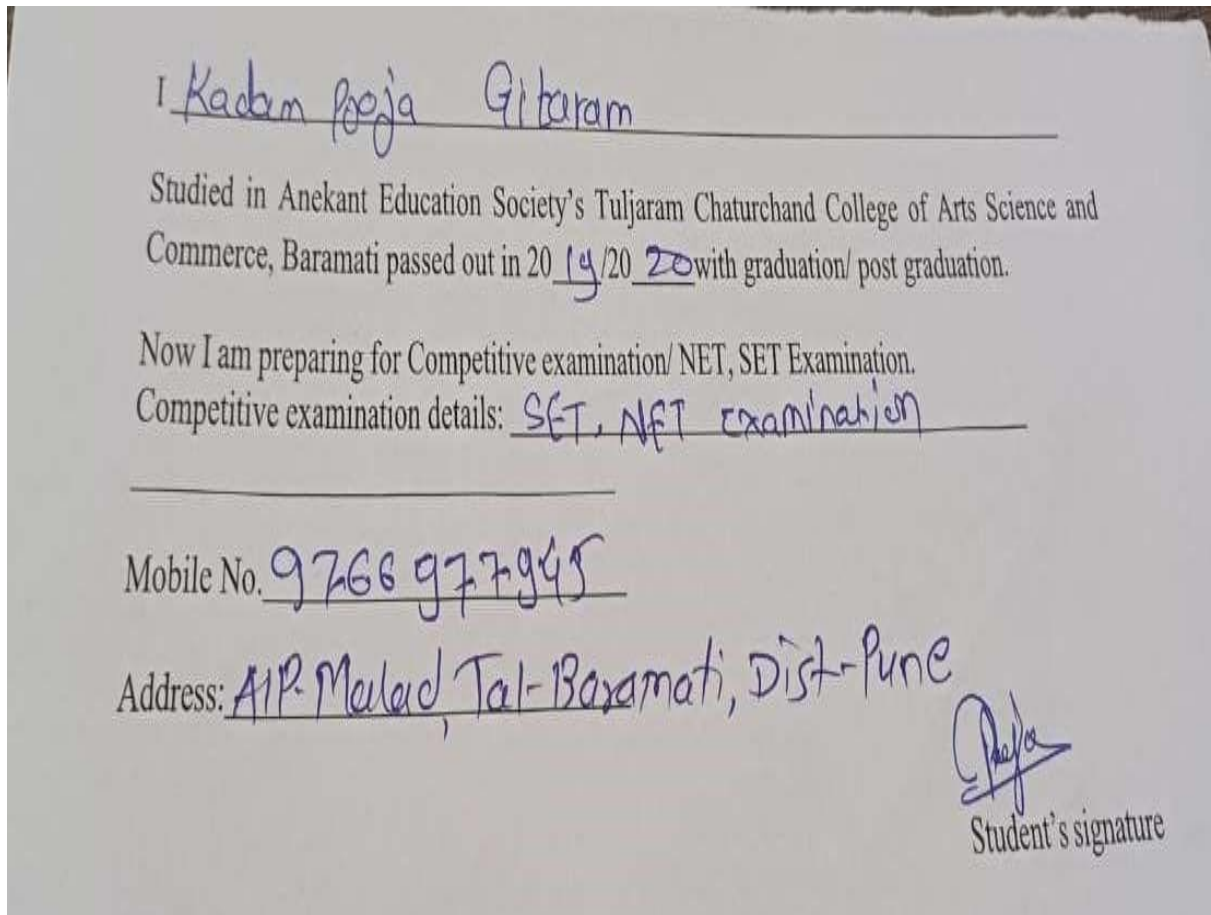 I Kadam Pooja Gitaram
Studied in Anekant Education Society's Tuljaram Chaturchand College of Arts Science and
Commerce, Baramati passed out in 20 19/20 20 with graduation/ post graduation.
Now I am preparing for Competitive examination/ NET, SET Examination.
Competitive examination details: SET, NET Examination
Mobile No. 9766977945
Address: A/P- Malad, Tal-Baramati, Dist-Pune
Pooja
Student's signature